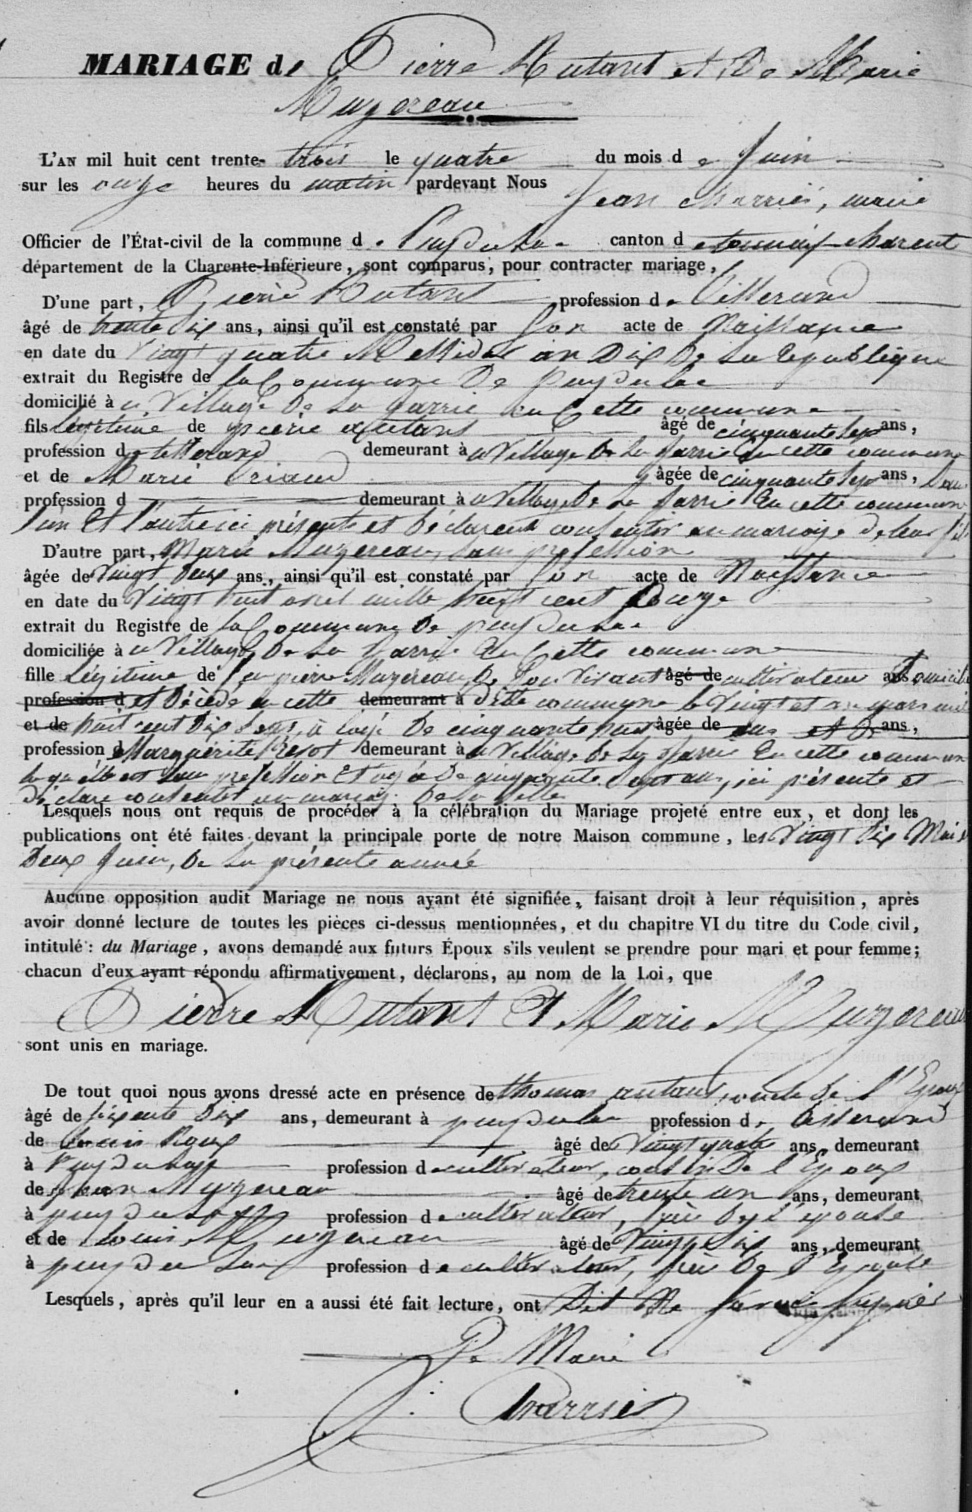 MARIAGE de Pierre Autant et De Marie
Muzereau
L'AN mil huit cent trente trois le quatre du mois de Juin
sur les onze heures du matin pardevant Nous
Jean Charrié, maire
Officier de l'État-civil de la commune de Puydulac canton de tonnay charente
département de la Charente-Inférieure, sont comparus, pour contracter mariage,
D'une part, Pierre Autant profession de tisserand
âgé de trente ans, ainsi qu'il est constaté par son acte de Naissance
en date du Vingt quatre Messidor an Dix de la republique
extrait du Registre de la Commune De puydulac
domicilié à u Village De La Jarrie en Cette commune
fils légitime de pierre autant âgé de cinquante sept ans,
profession de tisserand demeurant à u Village De La Jarrie en cette commune
et de Marie âgée de cinquante sept ans, sans
profession d demeurant à u Village De La Jarrie en cette commune
l'un et l'autre ici présents et déclarent consentir au mariage de leur fils
D'autre part, Marie Muzereau, sans profession
âgée de vingt deux ans, ainsi qu'il est constaté par son acte de Naissance
en date du Vingt huit avril mille huit cent onze
extrait du Registre de la Commune De puydulac
domiciliée à u Village De La Jarrie en Cette commune
fille Légitime de feu pierre Muzereau, De son vivant âgé de cultivateur ans domicilié
profession d et Décédé en cette demeurant à dite commune le Vingt et un mars mil
et de huit cent Dix sept, à l'age De cinquante huit âgée de ans et De ans,
profession d Marguerite demeurant à u Village de La Jarrie En cette commune
laquelle est sans profession et agée de cinquante ans, ici présente et
Déclare consentir au mariage De sa fille
Lesquels nous ont requis de procéder à la célébration du Mariage projeté entre eux, et dont les
publications ont été faites devant la principale porte de notre Maison commune, les Vingt six Mai &
Deux Juin, De la présente année
Aucune opposition audit Mariage ne nous ayant été signifiée, faisant droit à leur réquisition, après
avoir donné lecture de toutes les pièces ci-dessus mentionnées, et du chapitre VI du titre du Code civil,
intitulé : du Mariage, avons demandé aux futurs Époux s'ils veulent se prendre pour mari et pour femme ;
chacun d'eux ayant répondu affirmativement, déclarons, au nom de la Loi, que
Pierre Autant Et Marie Muzereau
sont unis en mariage.
De tout quoi nous avons dressé acte en présence de thomas autant, oncle de l'Epoux
âgé de soixante Dix ans, demeurant à puydulac profession de tisserand
de Louis Roux âgé de Vingt quatre ans, demeurant
à Puydulac profession de cultivateur, cousin De l'Epoux
de Jean Muzereau âgé de trente un ans, demeurant
à puydulac profession de cultivateur, frère De l'épouse
et de Louis Muzereau âgé de Vingt six ans, demeurant
à puydulac profession de cultivateur, frère De l'Epouse
Lesquels, après qu'il leur en a aussi été fait lecture, ont Dit Ne savoir signer
Le Maire
J. Charrié